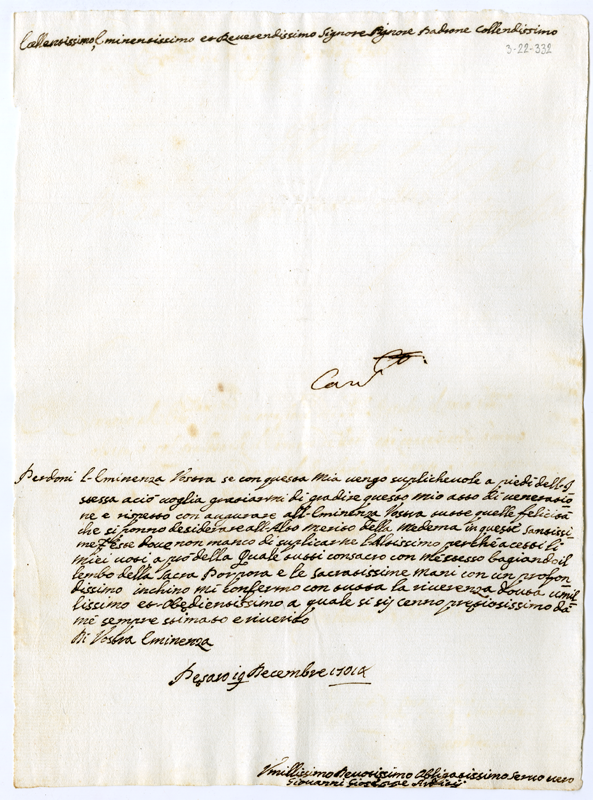 Eccellentissimo, Eminentissimo et Reverendissimo Signore Signore Padrone Collendissimo
3-22-332
Perdoni l'Eminenza Vostra se con questa mia vengo suplichevole a piedi dell'I
stessa acciò voglia graziarmi di gradire questo mio atto di veneratio
ne e rispetto con augurare all'Eminenza Vostra tutte quelle felicità
che si ponno desiderare all'Alto merito della Medema in queste Santissi
me Feste dove non manco di suplicarne l'Altissimo perche accetti li
miei voti a prò della Quale tutti consacro con me stesso bagiando il
lembo della Sacra Porpora e le Sacratissime Mani con un profon
dissimo inchino mi confermo con tutta la riverenza douta umil
lissimo et Obedientissimo a quale si sij cenno preziosissimo da
me sempre stimato e riverito
Di Vostra Eminenza
Pesaro 19 Decembre 1701
Umillissimo Devotissimo Obligatissimo Servo vero
Giovanni Gioseppe